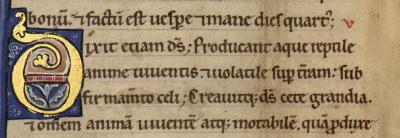 bonũ. ⁊ factũ est uespe ⁊ mane dies quart᷒; v
Dixit etiam ds̄; Producant aque reptile
anime uiuentis. ⁊ uolatile sup̄ t̄ram. sub
firmam̄to celi; Creauitq; ds̄ cete grandia.
⁊ omem animā uiuentē atq; motabilē. quā p̄duxe